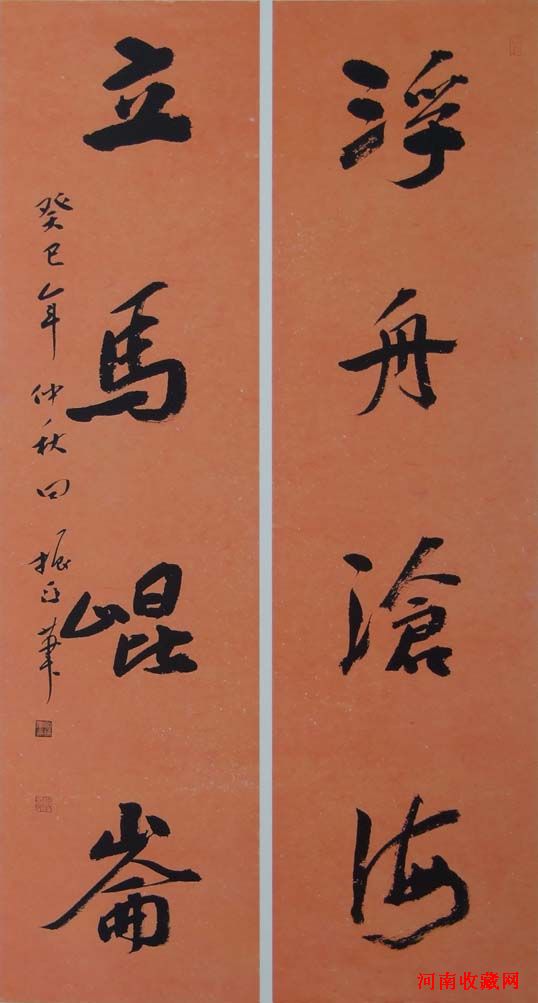 浮舟滄海
立馬崐崙
癸巳年仲秋曰振正筆
河南收藏网